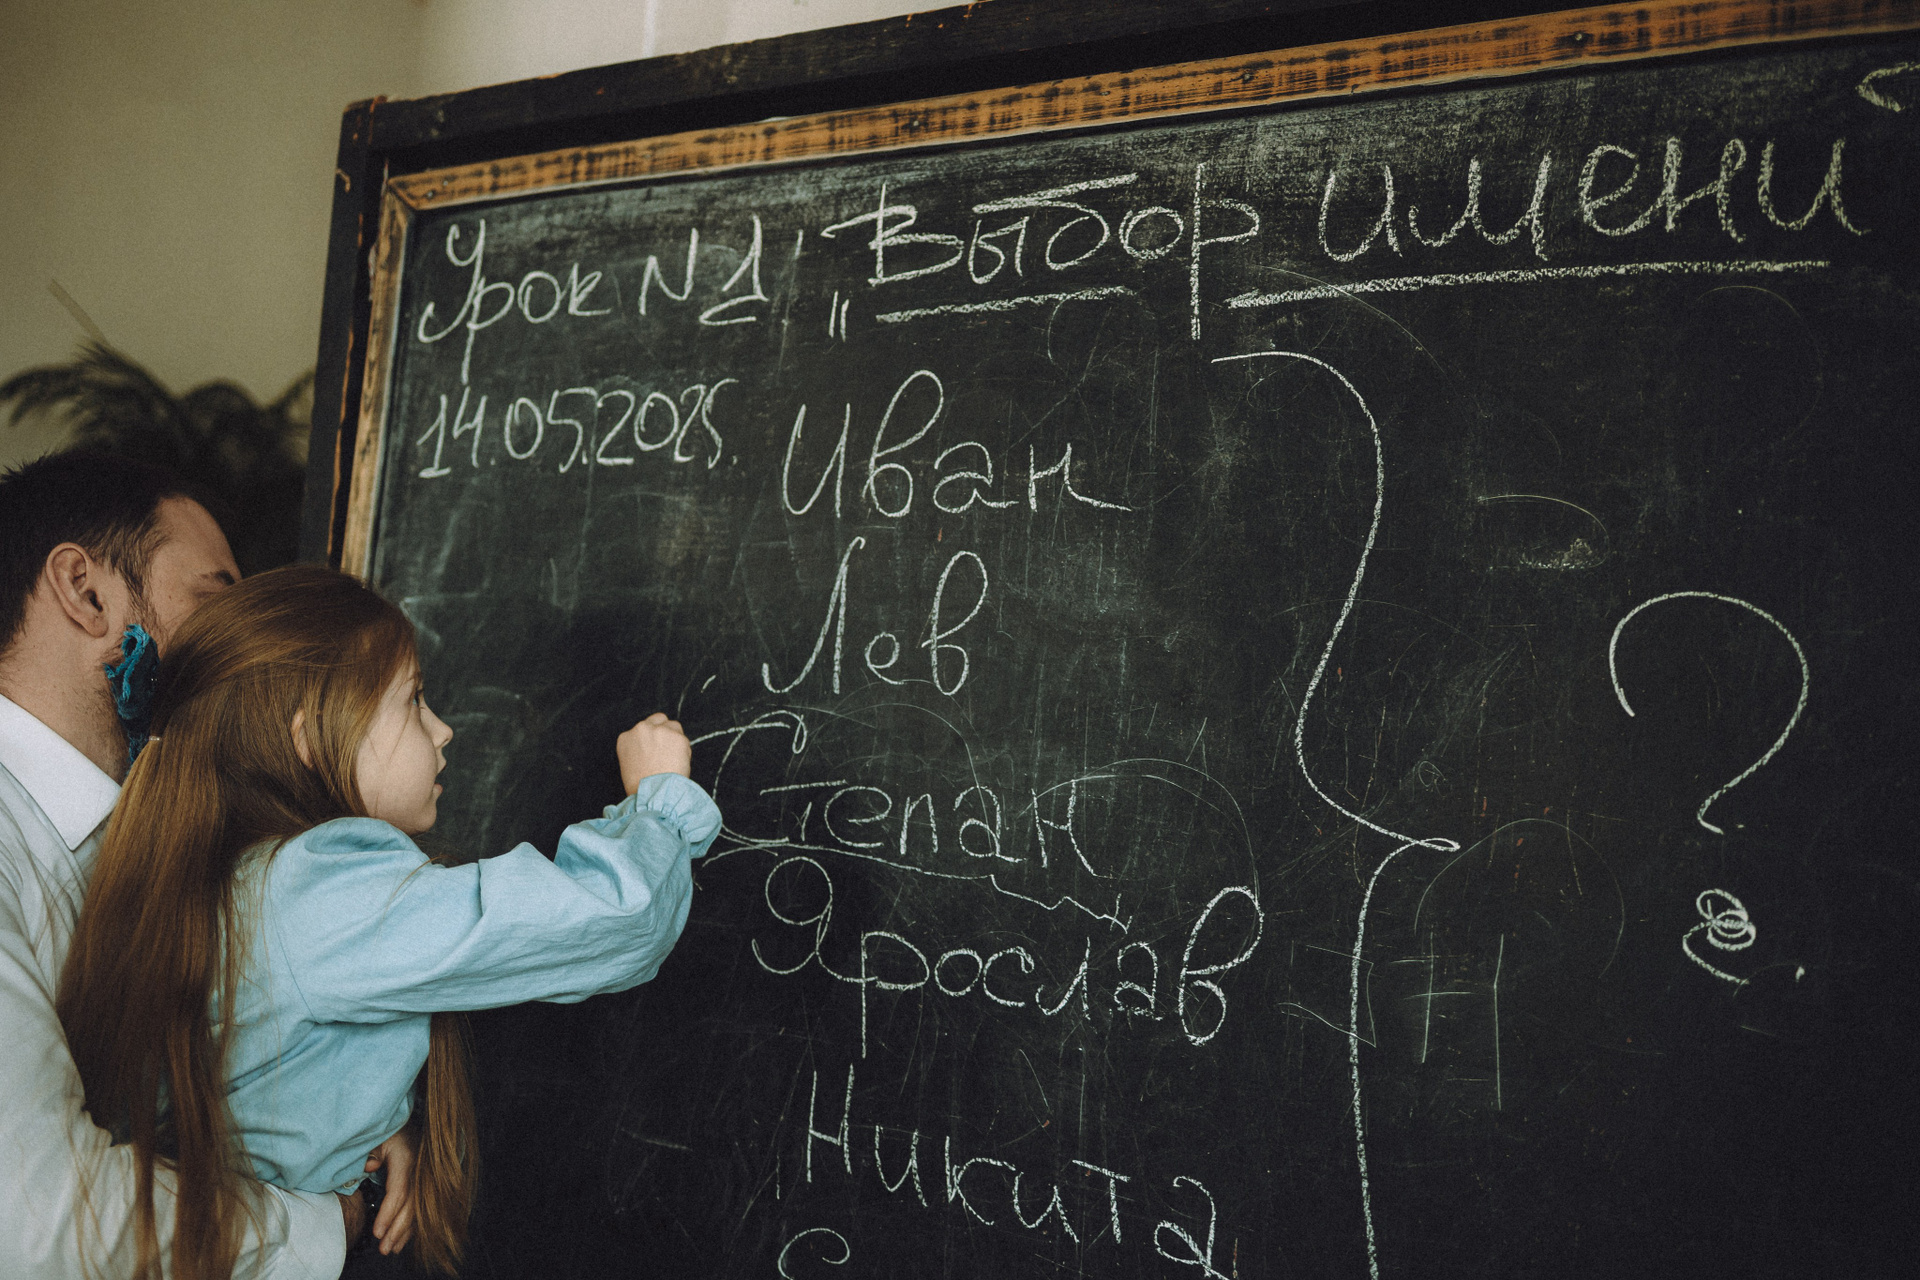 Урок N1 „Выбор имени
14.05.2025.
Иван
Лев
Степан
Ярослав
Никита
?